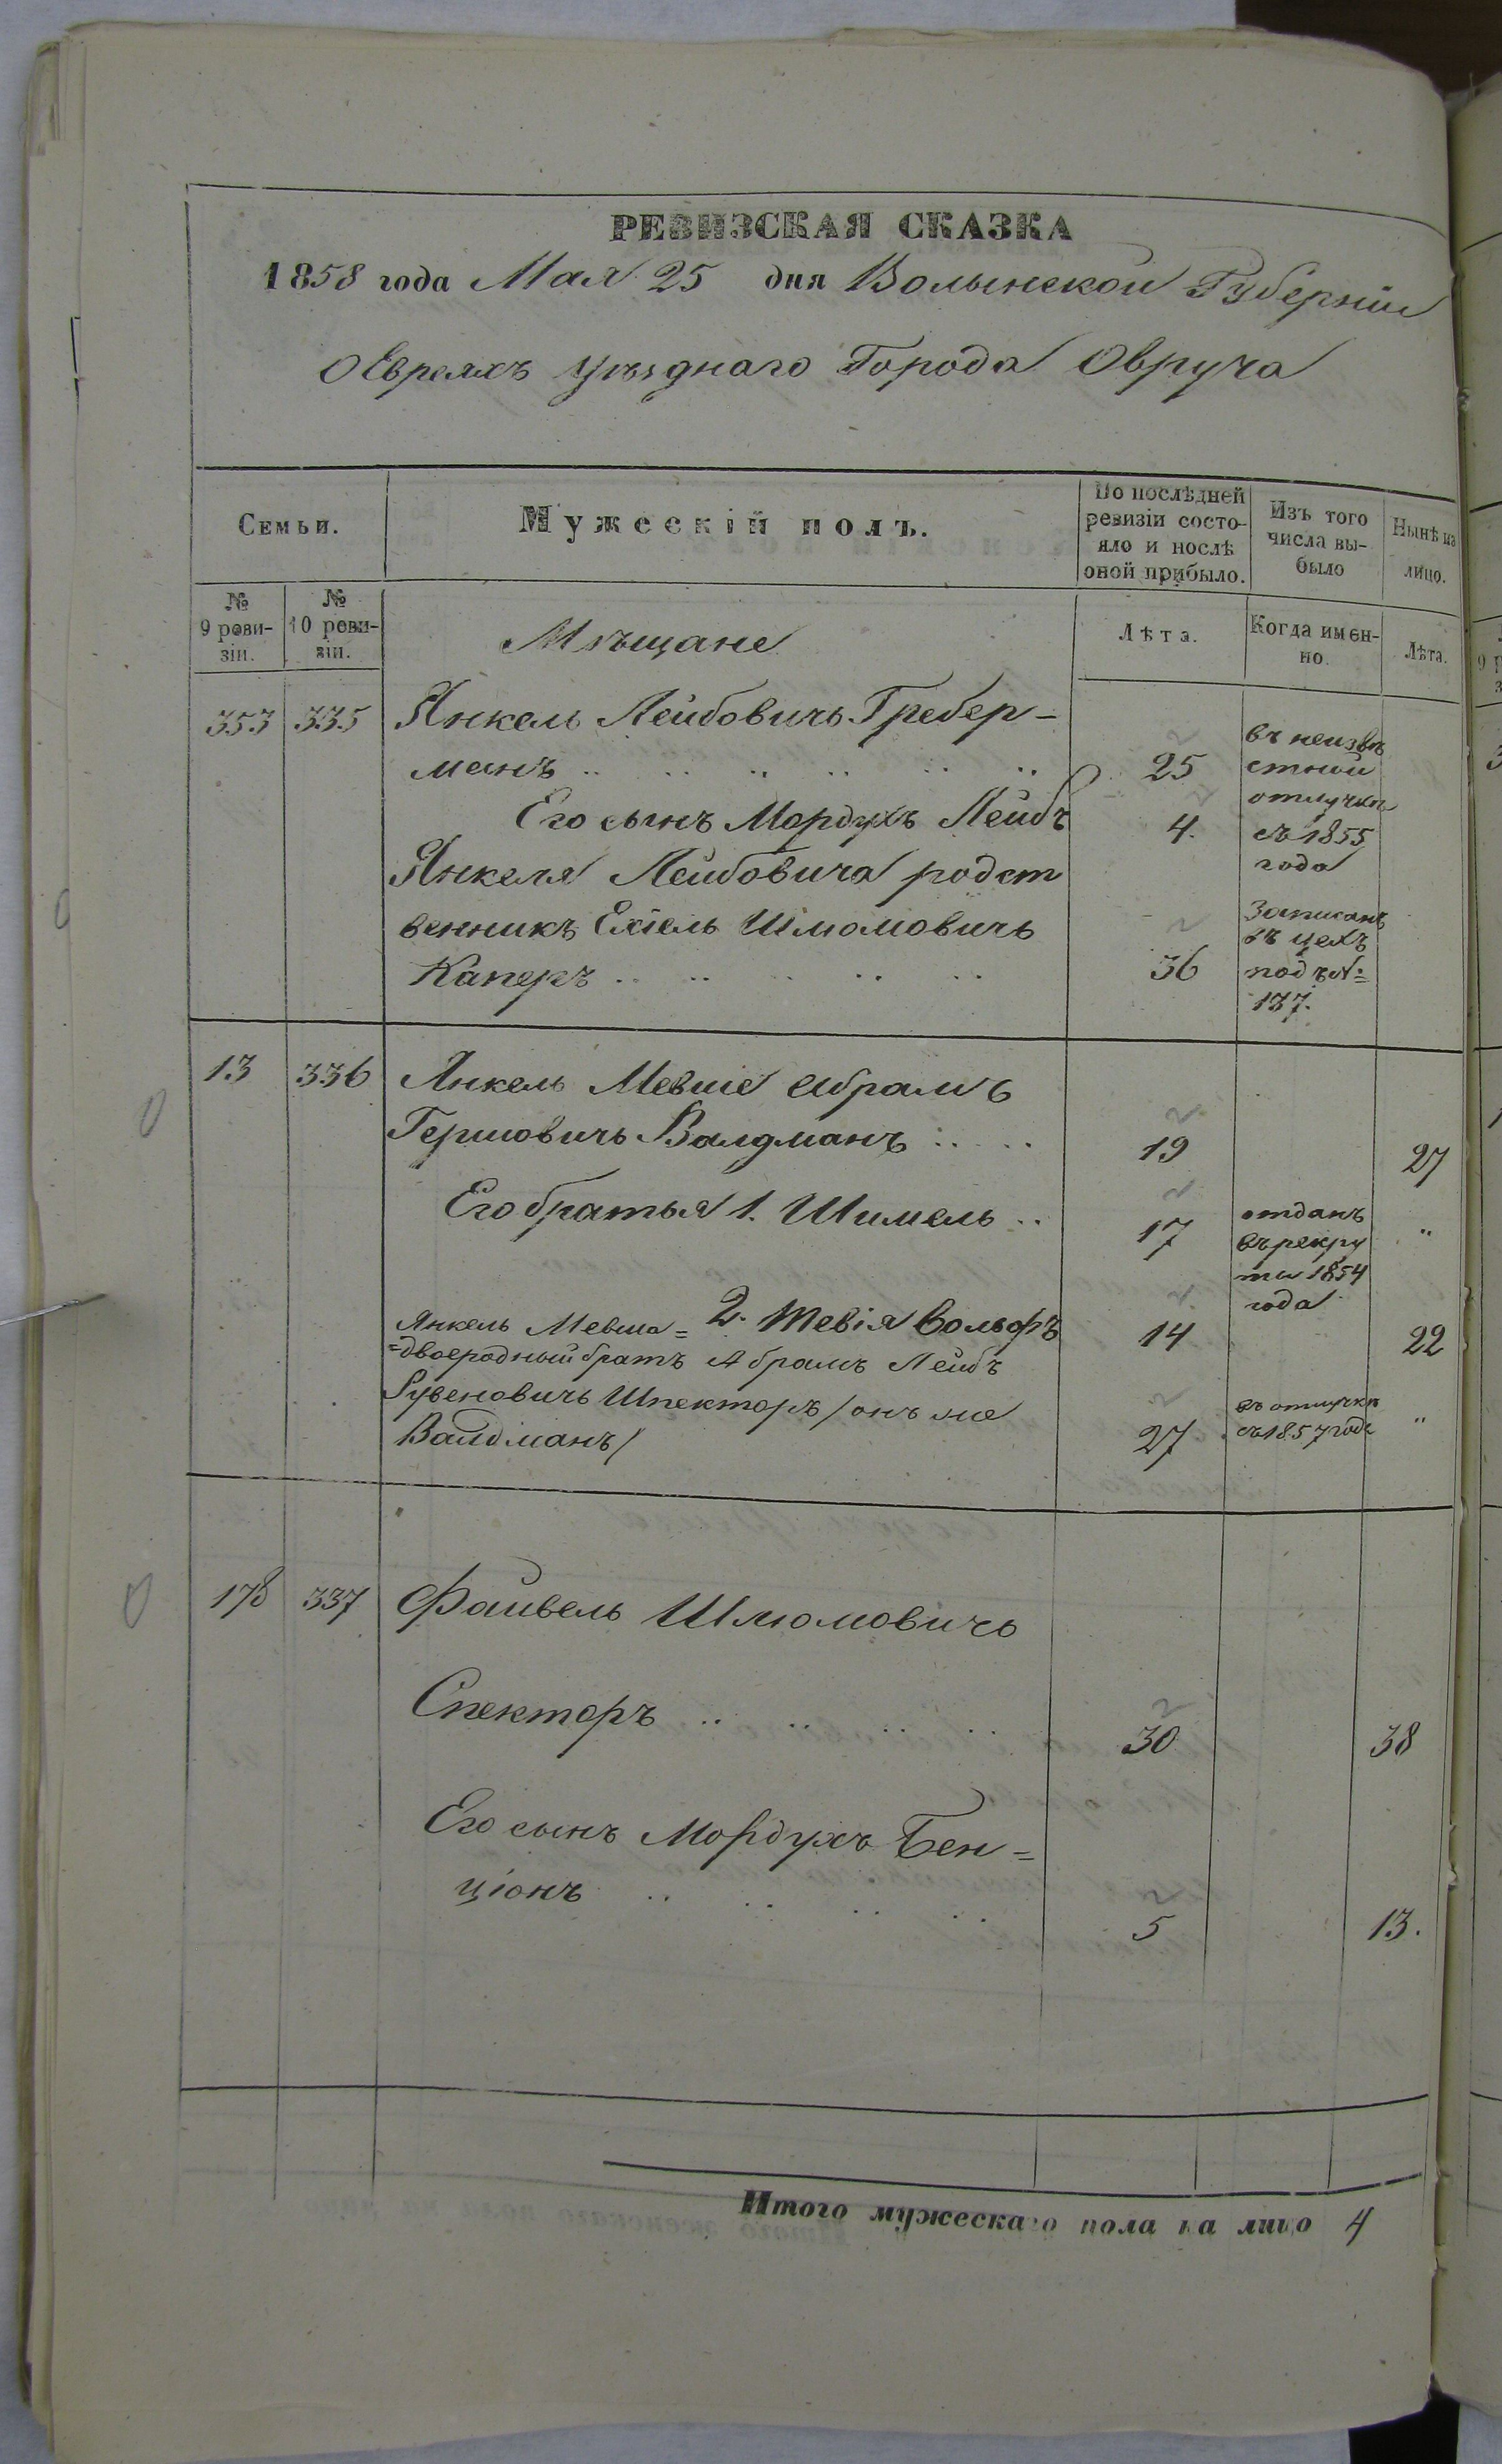 РЕВИЗСКАЯ СКАЗКА
1858 года Мая 25 дня Волынской Губерніи
О Евреяхъ Уѣзднаго Города Овруча
Семьи.
Мужескій полъ.
По послѣдней ревизіи состо-
яло и послѣ оной прибыло.
Изъ того числа вы-
было
Нынѣ на лицо.
№ 9 реви-
зіи.
№ 10 реви-
зіи.
Мѣщане
Лѣта.
Когда имен-
но.
Лѣта.
353 335 Янкель Лейбовичъ Гребер-
манъ 25
въ неизвѣ
стной
отлучкѣ
съ 1855
года
Его сынъ Мордухъ Лейбъ 4.
Янкеля Лейбовича родст
венникъ Ехіель Шломовичь
Каперъ 36
Записанъ
въ цехъ
подъ №
137.
13 336 Янкель Мевше Абрамъ
Гершовичь Валдманъ 19 27
Его братья 1. Шимель 17 "
отданъ
въ рекру
ты 1854
года
2. Тевія Вольфъ 14 22
Янкель Мевша=
=двоеродный братъ Абрамъ Лейбъ
Рувеновичь Шпекторъ /онъ же
Валдманъ/ 27 "
въ отлучкѣ
съ 1857 года
178 337 Файвель Шлюмовичь
Спекторъ 30 38
Его сынъ Мордухъ Бен=
ціонъ 5 13.
Итого мужескаго пола на лицо 4